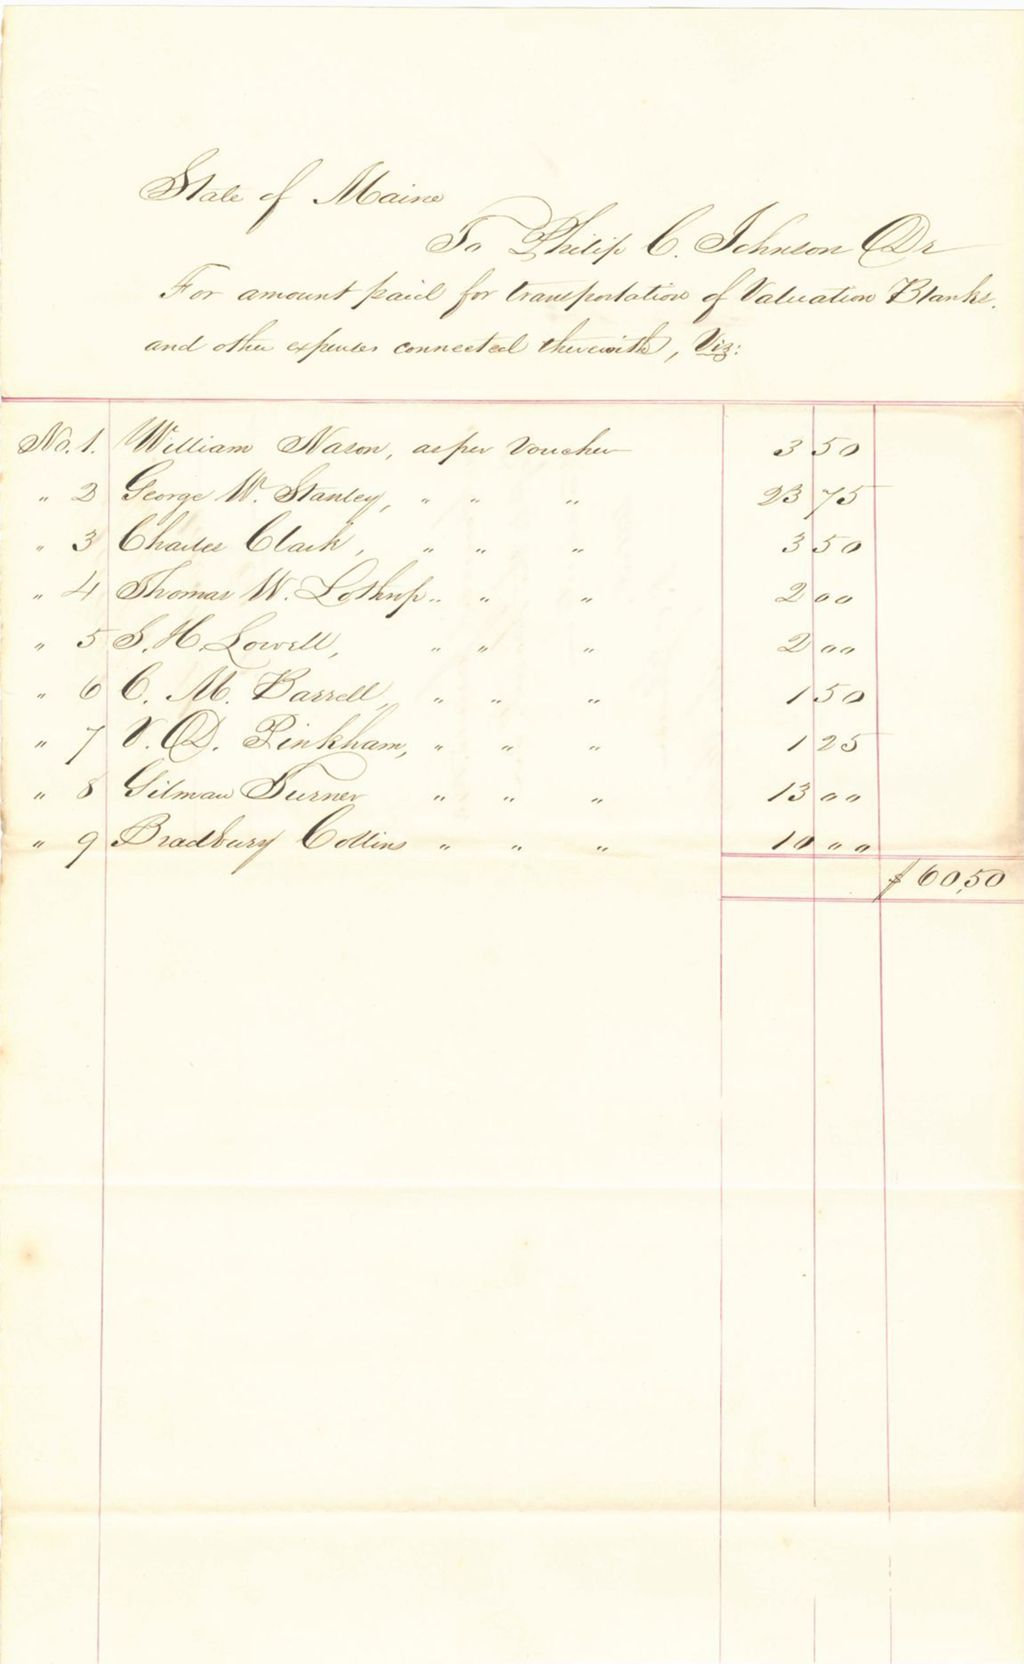 State of Maine
To Philip C. Johnson Dr
For amount paid for transportation of Valuation Blanks.
and other expenses connected therewith, Viz:
No. 1. William Nason, as per Voucher 3 50
" 2 George W. Stanley, " " " 23 75
" 3 Charles Clark, " " " 3 50
" 4 Thomas W. Lothrop " " " 2 00
" 5 S. H. Lowell, " " " 2 00
" 6 C. M. Barrell, " " " 1 50
" 7 V. D. Pinkham, " " " 1 25
" 8 Gilman Turner " " " 13 00
" 9 Bradbury Collins " " " 10 00
$ 60,50